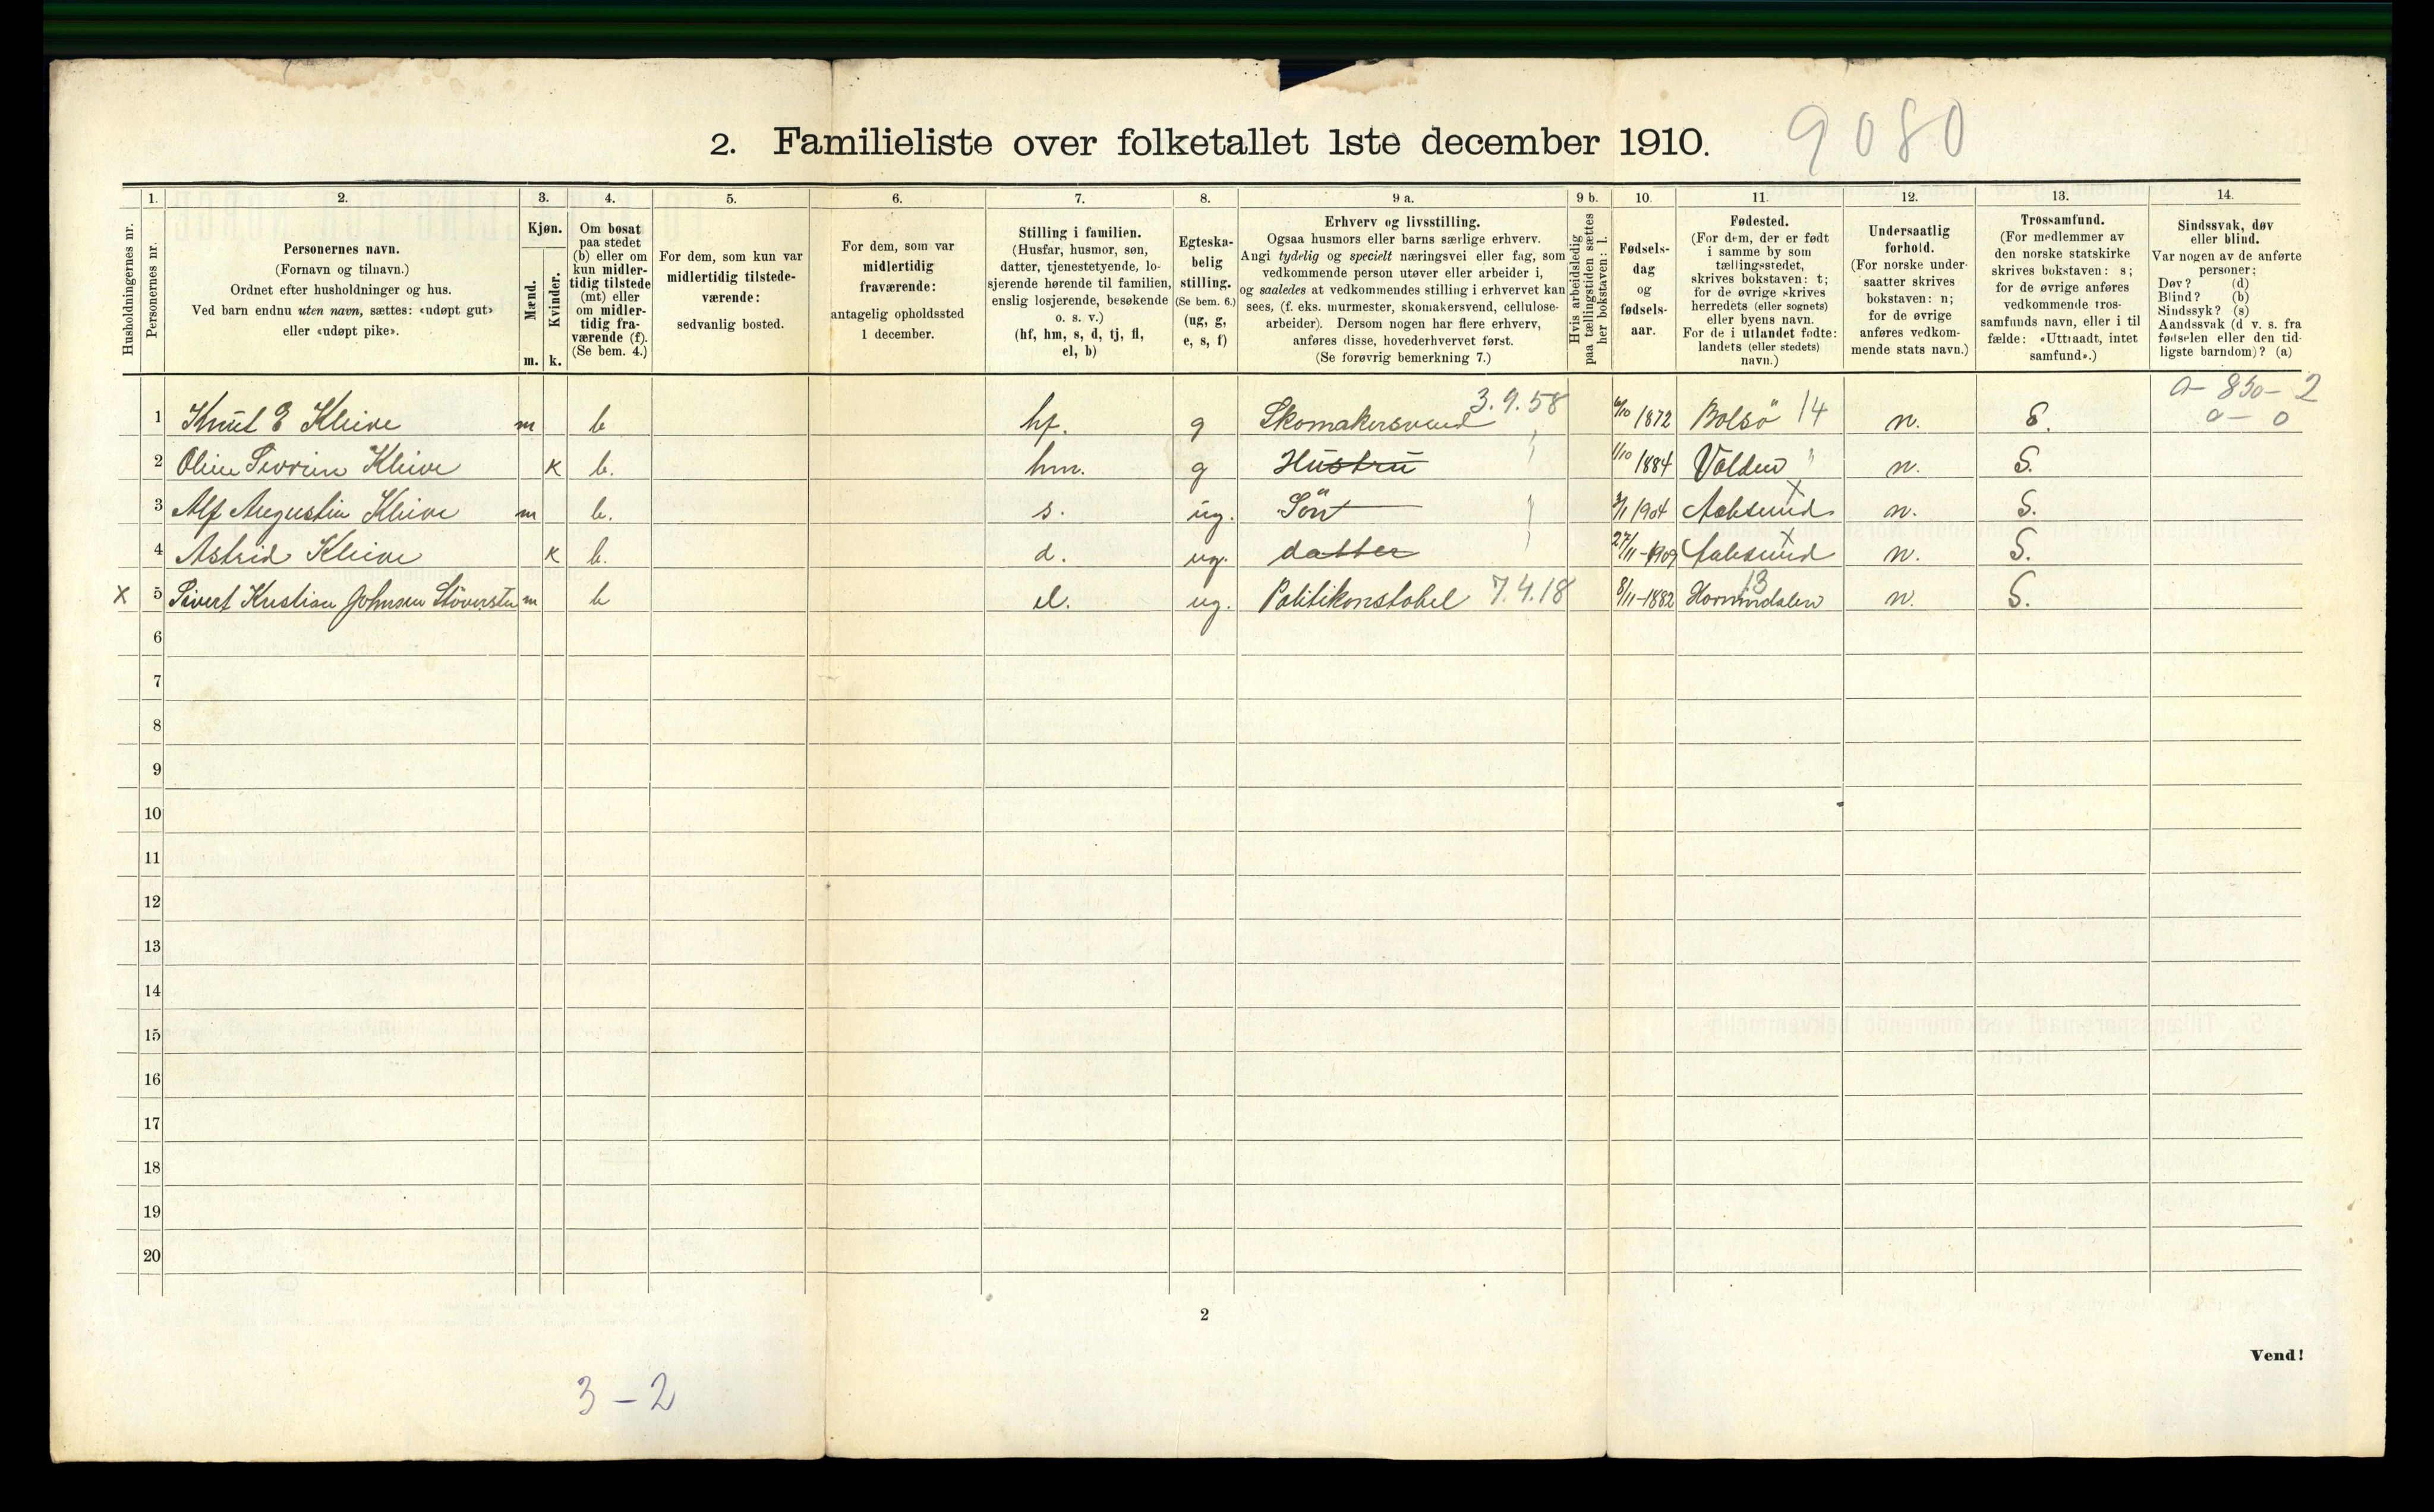 2. Familieliste over folketallet 1ste december 1910. 9080
Husholdningernes nr.
1. Personernes nr.
2. Personernes navn.
(Fornavn og tilnavn.)
Ordnet efter husholdninger og hus.
Ved barn endnu uten navn, sættes: «udøpt gut»
eller «udøpt pike».
3. Kjøn.
Mænd. m.
Kvinder. k.
4. Om bosat
paa stedet
(b) eller om
kun midler-
tidig tilstede
(mt) eller
om midler-
tidig fra-
værende (f).
(Se bem. 4.)
5. For dem, som kun var
midlertidig tilstede-
værende:
sedvanlig bosted.
6. For dem, som var
midlertidig
fraværende:
antagelig opholdssted
1 december.
7. Stilling i familien.
(Husfar, husmor, søn,
datter, tjenestetyende, lo-
sjerende hørende til familien,
enslig losjerende, besøkende
o. s. v.)
(hf, hm, s, d, tj, fl,
el, b)
8. Egteska-
belig
stilling.
(Se bem. 6.)
(ug, g,
e, s, f)
9 a. Erhverv og livsstilling.
Ogsaa husmors eller barns særlige erhverv.
Angi tydelig og specielt næringsvei eller fag, som
vedkommende person utøver eller arbeider i,
og saaledes at vedkommendes stilling i erhvervet kan
sees, (f. eks. murmester, skomakersvend, cellulose-
arbeider). Dersom nogen har flere erhverv,
anføres disse, hovederhvervet først.
(Se forøvrig bemerkning 7.)
9 b. Hvis arbeidsledig
paa tællingstiden sættes
her bokstaven: l.
10. Fødsels-
dag
og
fødsels-
aar.
11. Fødested.
(For dem, der er født
i samme by som
tællingsstedet,
skrives bokstaven: t;
for de øvrige skrives
herredets (eller sognets)
eller byens navn.
For de i utlandet fødte:
landets (eller stedets)
navn.)
12. Undersaatlig
forhold.
(For norske under-
saatter skrives
bokstaven: n;
for de øvrige
anføres vedkom-
mende stats navn.)
13. Trossamfund.
(For medlemmer av
den norske statskirke
skrives bokstaven: s;
for de øvrige anføres
vedkommende tros-
samfunds navn, eller i til
fælde: «Uttraadt, intet
samfund».)
14. Sindssvak, døv
eller blind.
Var nogen av de anførte
personer;
Døv? (d)
Blind? (b)
Sindssyk? (s)
Aandssvak (d v. s. fra
fødselen eller den tid-
ligste barndom)? (a)
0-850-2
1 Knut E Kleive m b hf. g Skomakersvend 3.9.58 1872 Bolsö 14 n. S. 0-0
2 Oline Sevrine Kleive k b. hm. g Hustru " 1/10 1884 Volden " n. S.
3 Alf Augustin Kleive m b. s. ug. Sön " 1904 Aalesund x n. S.
4 Astrid Kleive k b. d. ug. datter " 27/11-1909 Aalesund x n. S.
x 5 Sivert Kristian Johnsen m b el. ug. Politikonstabel 7.4.18 8/11-1882 Hornindalen 13 n. S.
6
7
8
9
10
11
12
13
14
15
16
17
18
19
20
2
Vend!
3-2